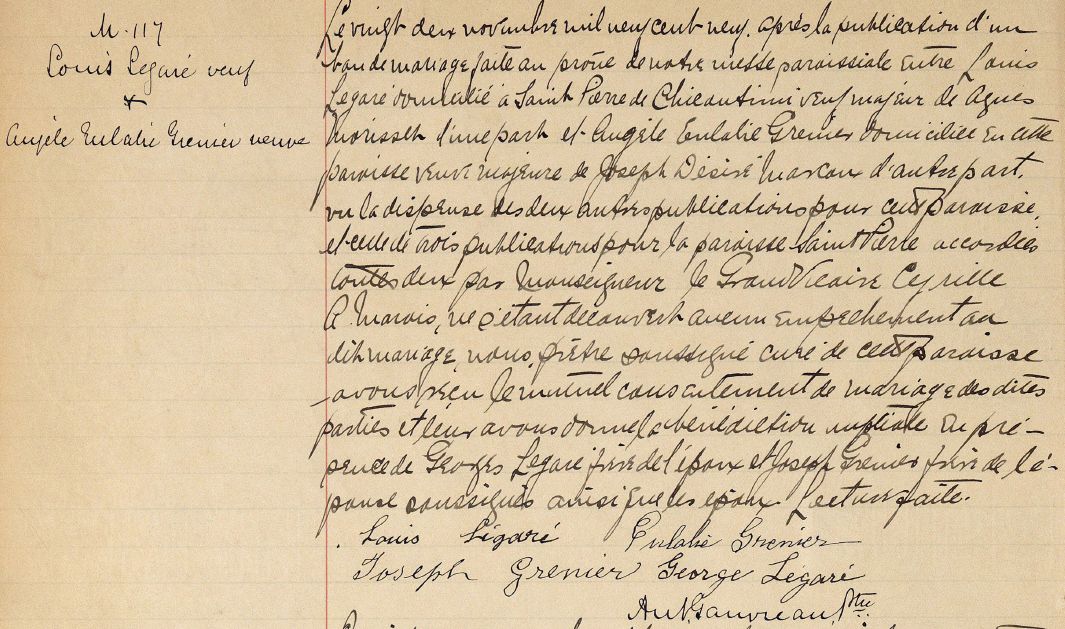 M. 117
Louis Légaré veuf
&
Angèle Eulalie Grenier veuve
Le vingt deux novembre mil neuf cent neuf, après la publication d'un
ban de mariage faite au prône de notre messe paroissiale entre Louis
Légaré domicilié à Saint Pierre de Chicoutimi veuf majeur de Agnes
Morisset d'une part et Angèle Eulalie Grenier domiciliée en cette
paroisse veuve majeure de Joseph Désiré Marcoux d'autre part.
vu la dispense des deux autres publications pour cette paroisse,
et celle de trois publications pour la paroisse Saint Pierre accordées
toutes deux par Monseigneur le Grand Vicaire Cyrille
A. Marois, ne s'étant découvert aucun empêchement au
dit mariage, nous, prêtre soussigné curé de cette paroisse
avons reçu le mutuel consentement de mariage des dites
parties et leur avons donné la bénédiction nuptiale en pré-
sence de Georges Légaré frère de l'époux et Joseph Grenier frère de l'é-
pouse soussignés ainsi que les époux. Lecture faite.
Louis Légaré Eulalie Grenier
Joseph Grenier George Légaré
Gauvreau, Ptre